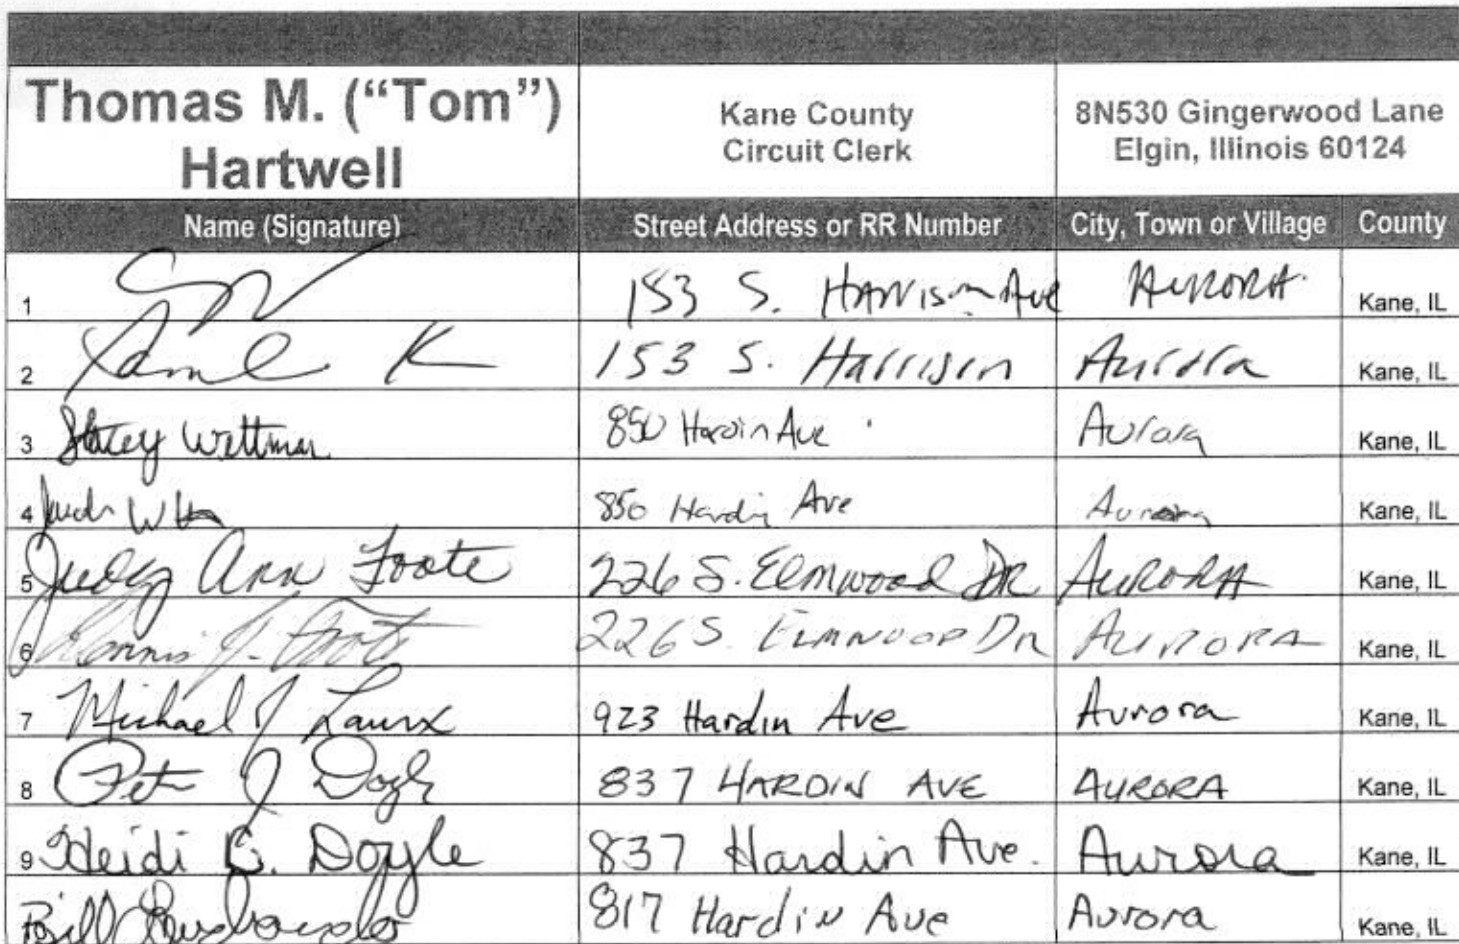 Thomas M. ("Tom") Hartwell
Kane County Circuit Clerk
8N530 Gingerwood Lane Elgin, Illinois 60124
Name (Signature) Street Address or RR Number City, Town or Village County
1 153 S. Harrison Ave AURORA Kane, IL
2 153 S. Harrison Aurora Kane, IL
3 Stacey 850 Hardin Ave Aurora Kane, IL
4 850 Hardin Ave Aurora Kane, IL
5 Judy Ann Foote 226 S. Elmwood DR AURORA Kane, IL
6 J. Foote 226 S. ELMWOOD DR AURORA Kane, IL
7 Michael J Laurx 923 Hardin Ave Aurora Kane, IL
8 Peter J Doyle 837 HARDIN AVE AURORA Kane, IL
9 Heidi C. Doyle 837 Hardin Ave. Aurora Kane, IL
10 Bill 817 Hardin Ave Aurora Kane, IL